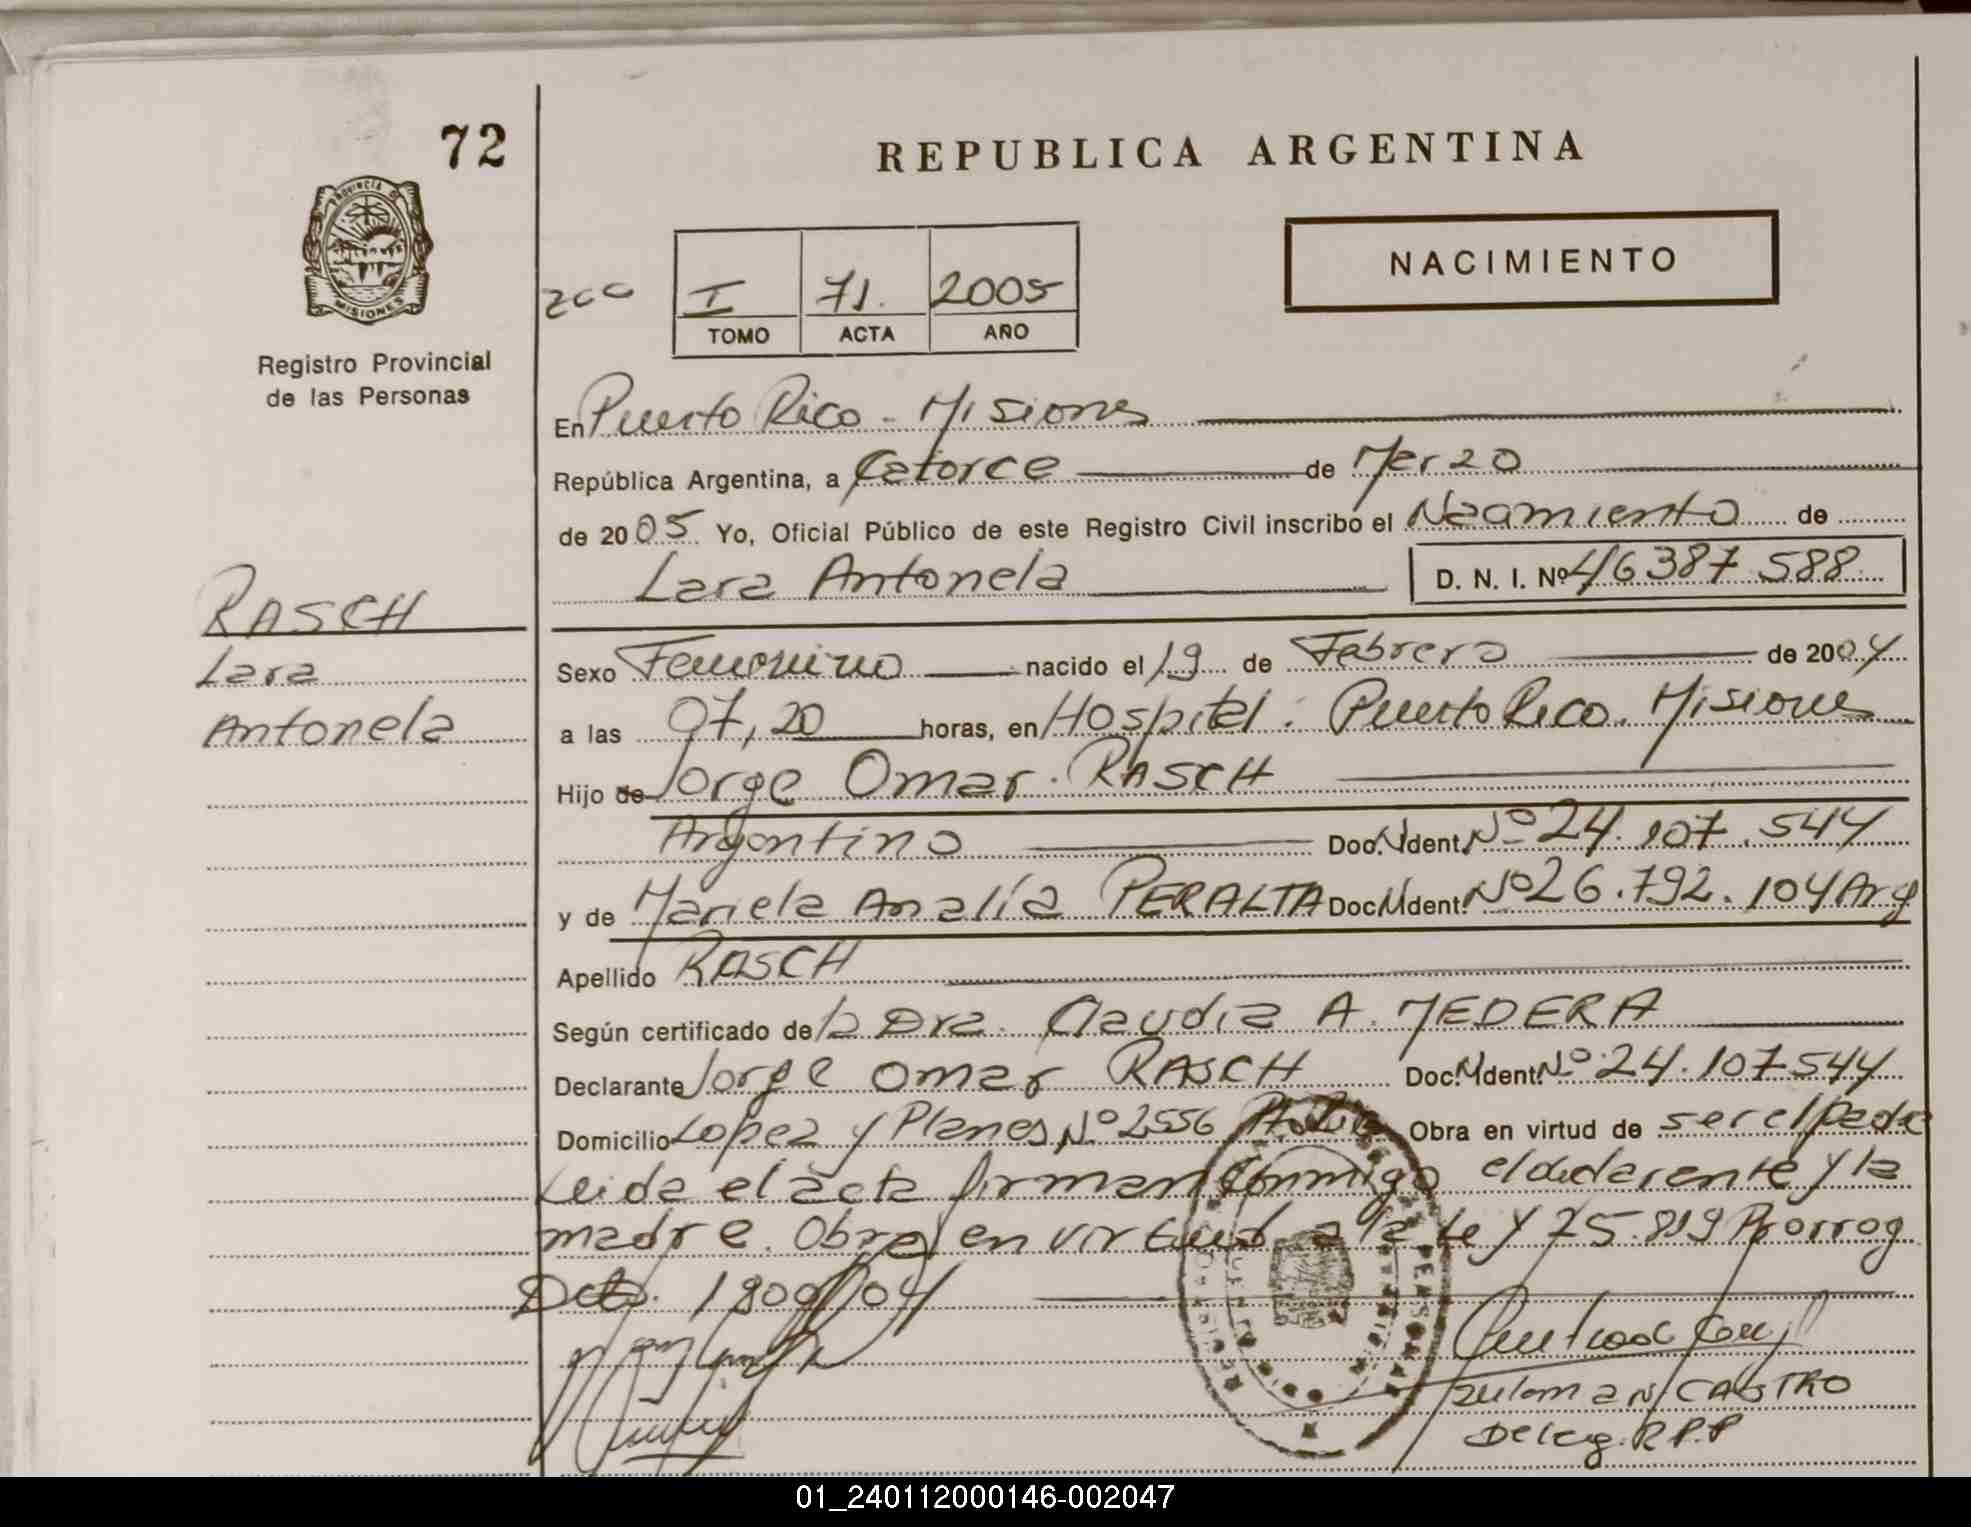 72
REPUBLICA ARGENTINA
PROVINCIA DE
MISIONES
Registro Provincial
de las Personas
NACIMIENTO
I 71. 2005
TOMO ACTA AÑO
En Puerto Rico - Misiones
República Argentina, a Catorce de Marzo
de 2005 Yo, Oficial Público de este Registro Civil inscribo el Nacimiento de
Lara Antonela D. N. I. Nº 46387588
RASCH
Lara
Antonela
Sexo Femenino nacido el 19 de Febrero de 2004
a las 07,20 horas, en Hospital. Puerto Rico. Misiones
Hijo de Jorge Omar RASCH
Argentino Doc. Ident. Nº 24.107.544
y de Mariela Analía PERALTA Doc. Ident. Nº 26.792.104 Arg
Apellido RASCH
Según certificado de la Dra. Claudia A. MEDERA
Declarante Jorge Omar RASCH Doc. Ident. Nº 24.107.544
Domicilio Lopez y Planes Nº 2556 Obra en virtud de ser el padre
Leida el acta firman conmigo el declarante y la
madre. Obra en virtud a la Ley 25.819 Prorrog
Dcto. 1800/04
CASTRO
Deleg. R.P.P
01_240112000146-002047